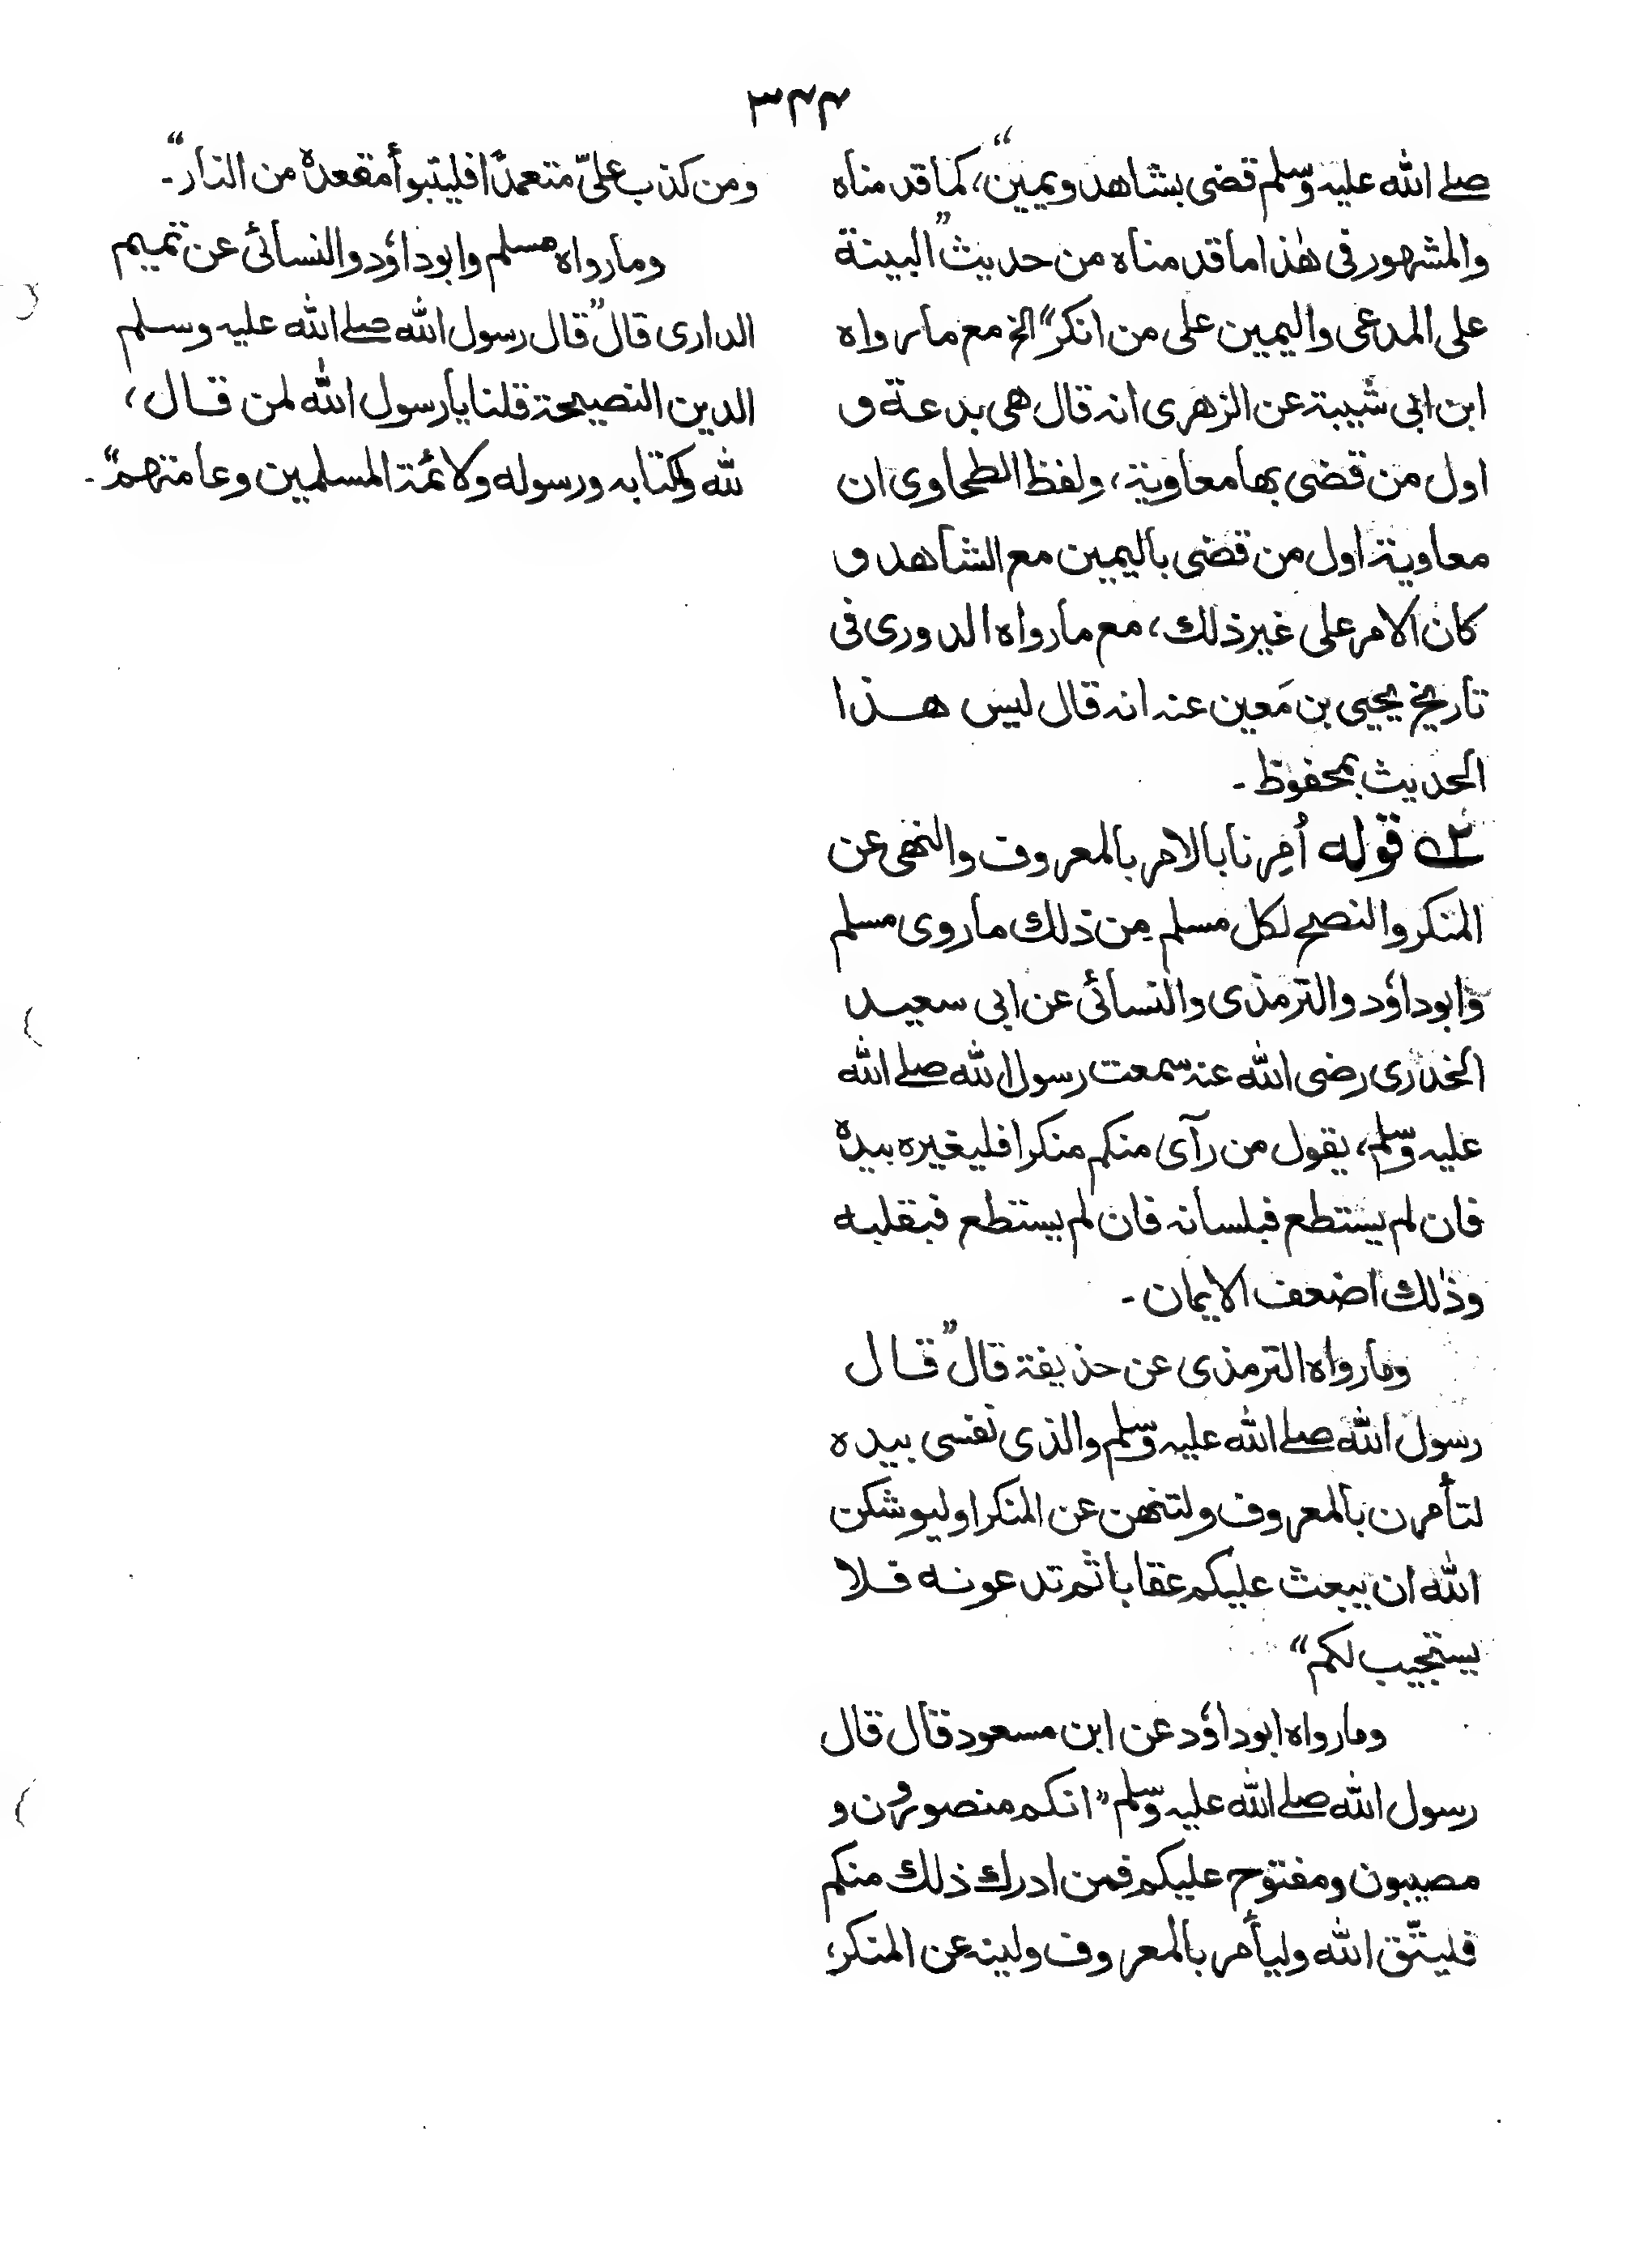 ۳۴۴
صلے اللہ علیہ وسلم قضی بشاھد ویمین“، کما قدمناہ
والمشہور فی ھٰذا ما قدمناہ من حدیث ”البینة
علی المدعی والیمین علی من انکر“ الخ مع ما رواہ
ابن ابی شیبة عن الزھری انہ قال ھی بدعة و
اول من قضی بھا معاویة، ولفظ الطحاوی ان
معاویة اول من قضی بالیمین مع الشاھد و
کان الامر علی غیر ذلك، مع ما رواہ الدوری فی
تاریخ یحیی بن مَعین عنہ انہ قال لیس ھذا
الحدیث بمحفوظ ۔
۲؎ قوله اُمِرنا بالامر بالمعروف والنھی عن
المنکر والنصح لکل مسلم مِن ذلك ما روی مسلم
وابوداوٗد والترمذی والنسائی عن ابی سعید
الخدری رضی اللہ عنہ سمعت رسول اللہ صلے اللہ
علیہ وسلم، یقول من رآی منکم منکرا فلیغیرہ بیدہ
فان لم یستطع فبلسانہ فان لم یستطع فبقلبه
وذٰلك اضعف الایمان ۔
وما رواہ الترمذی عن حذیفة قال ”قال
رسول اللہ صلے اللہ علیہ وسلم والذی نفسی بیدہ
لتأمرن بالمعروف ولتنھن عن المنکر اولیوشکن
اللہ ان یبعث علیکم عقابا ثم تدعونه فلا
یستجیب لکم“
وما رواہ ابوداوٗد عن ابن مسعود قال قال
رسول اللہ صلے اللہ علیہ وسلم ”انکم منصورون و
مصیبون ومفتوح علیکم فمن ادرك ذلك منکم
فلیتّق اللہ ولیأمر بالمعروف ولینه عن المنکر،
ومن کذب علیّ متعمدًا فلیتبوأ مقعدہ من النار“ ۔
وما رواہ مسلم وابوداوٗد والنسائی عن تمیم
الداری قال ”قال رسول اللہ صلے اللہ علیہ وسلم
الدین النصیحة قلنا یا رسول اللہ لمن قال،
للہ ولکتابه ورسوله ولائمة المسلمین وعامتھم“ ۔